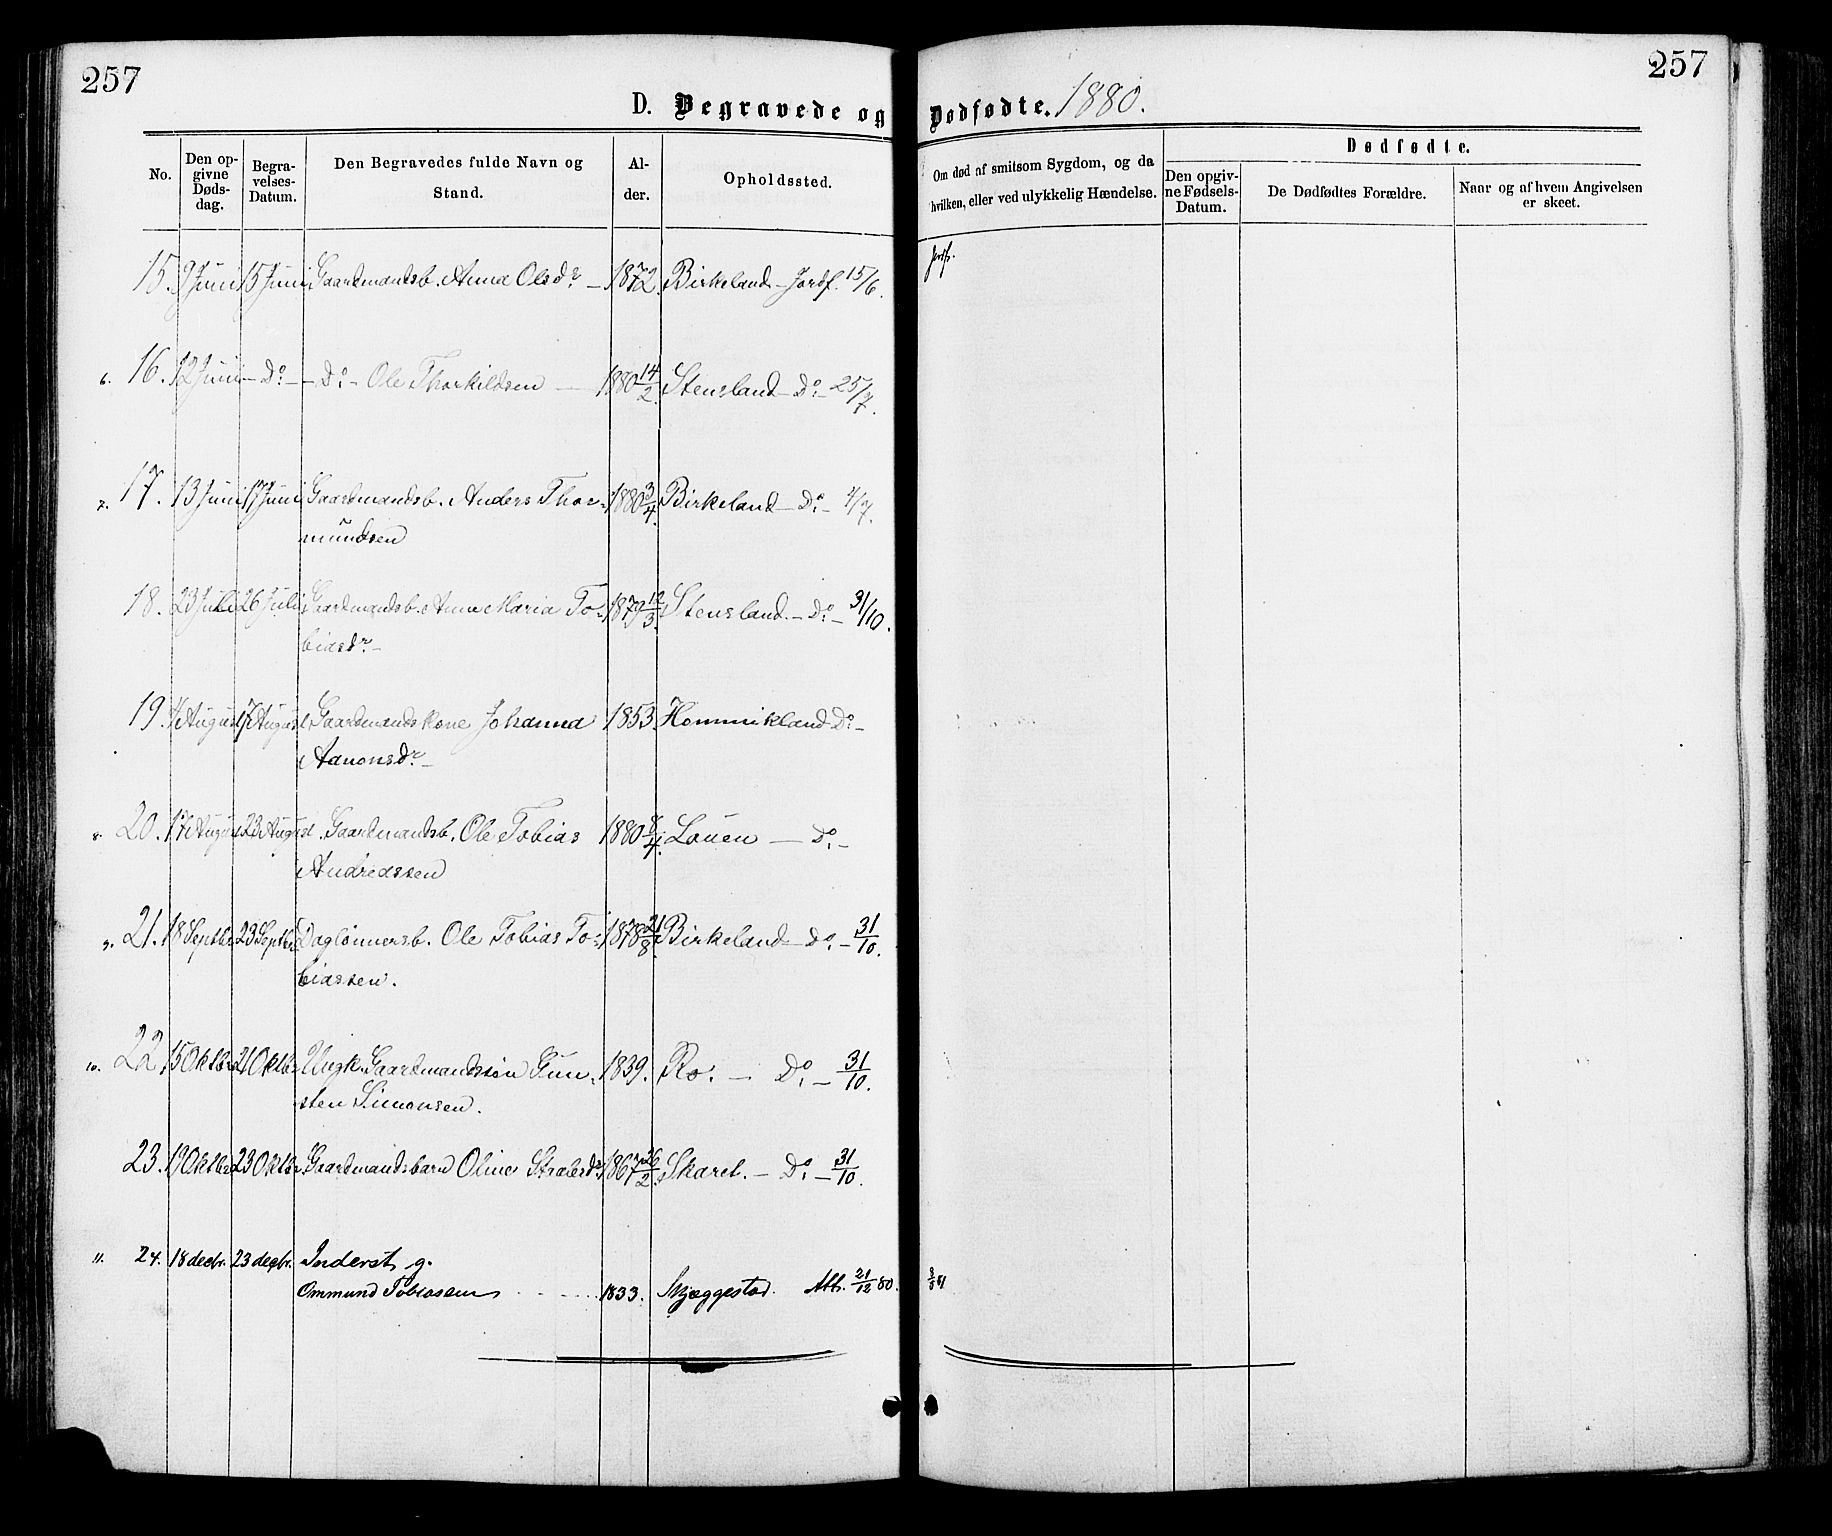 257
257
D. Begravede og Dødfødte. 1880.
No.
Den opgivne Dødsdag.
Begravelses-Datum.
Den Begravedes fulde Navn og Stand.
Alder.
Opholdssted.
Om død af smitsom Sygdom, og da hvilken, eller ved ulykkelig Hændelse.
Dødfødte.
Den opgivne Fødsels-Datum.
De Dødfødtes Forældre.
Naar og af hvem Angivelsen er skeet.
15. 9 Juni 15 Juni Gaardmandsb. Anna Olsdr. – 1872. Birkeland – Jordf. 15/6.
6. 16. 12 Juni – Do. – – Do. – Ole Thorkildsen – 1880 14/2. Stensland – Do. – 25/7.
7. 17. 13 Juni 17 Juni Gaardmandsb. Anders Thor-
mundsen 1880 3/4. Birkeland – Do. – 4/7.
18. 23 Juli 26 Juli Gaardmandsb. Anne Maria To-
biasdr. – 1879 12/3. Stensland. – Do. – 31/10.
19. August 7 August Gaardmandskone Johanna
Aanonsdr. – 1853. Hommikland Do. –
8. 20. 17 August 23 August. Gaardmandsb. Ole Tobias
Andreassen 1880 8/4. Louen – Do. –
9. 21. 18 Septbr 23 Septbr Daglønnersb. Ole Tobias To-
biassen. 1878 21/8. Birkeland – Do. – 31/10.
10. 22. 15 Oktbr 21 Oktbr Ungk. Gaardmandssøn Gun-
sten Simonsen. 1839. Ro. – Do. – 31/10.
23. 19 Oktbr 23 Oktbr Gaardmandsbarn Oline 1867 26/2. Skaret. – Do. – 31/10.
11. 24. 18 decbr. 23 decbr. Inderst g.
Ommund Tobiassen 1833. Skjeggestad. Att. 21/12 80.